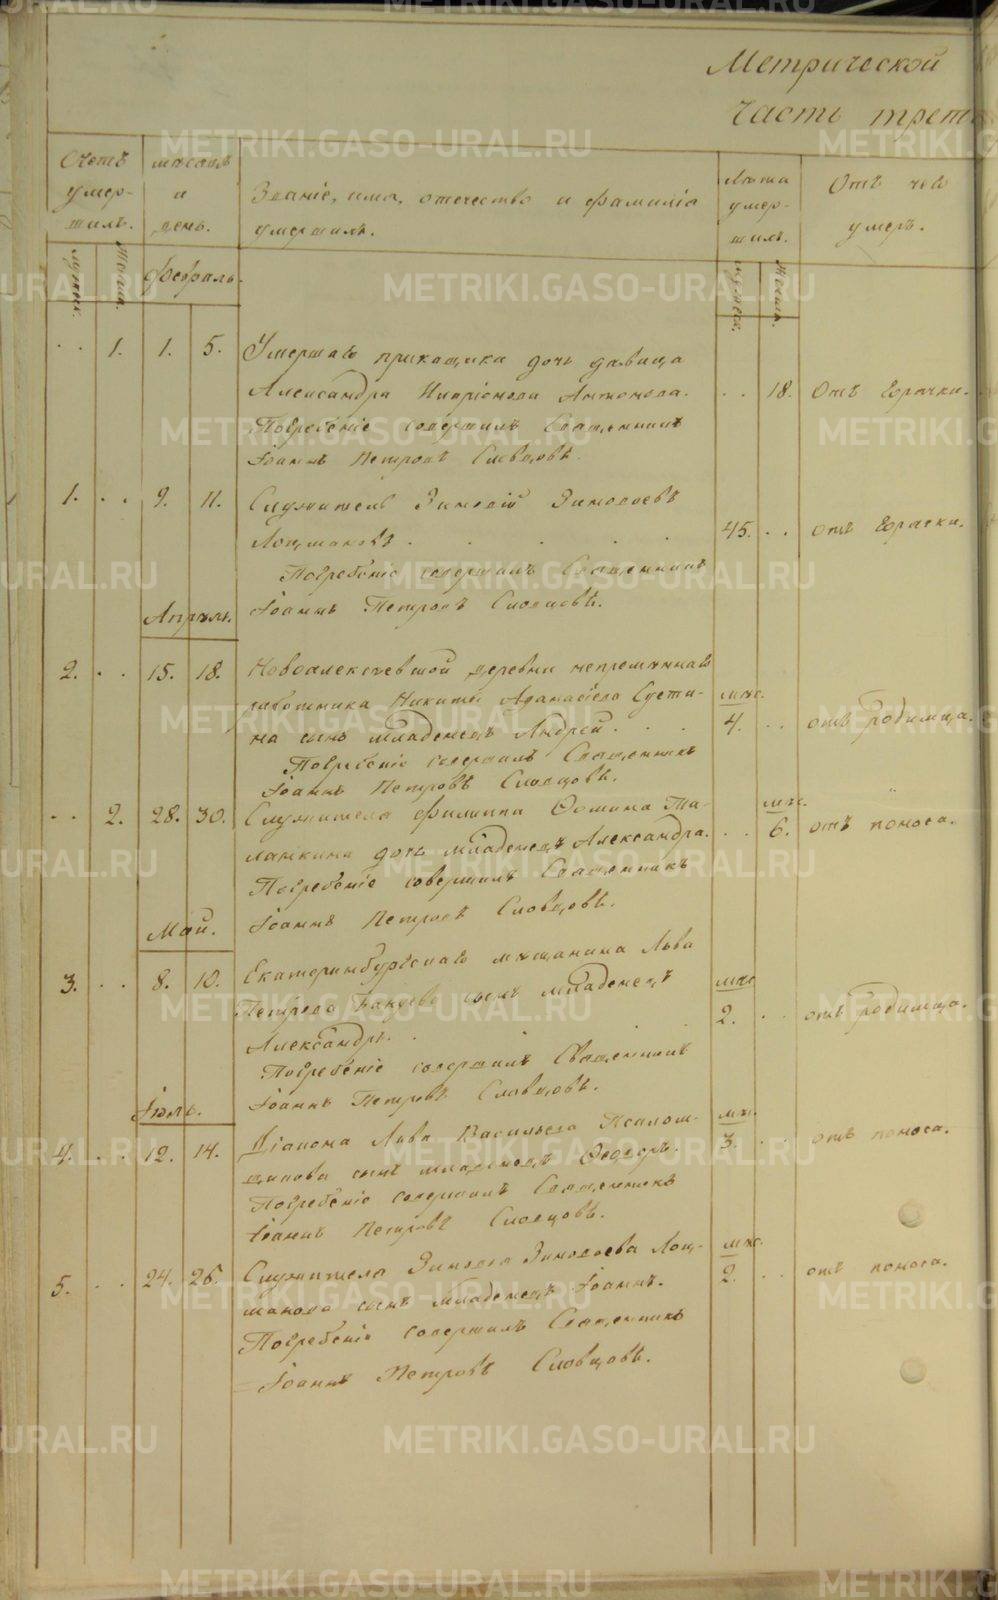 Метрической
Часть трет
Счетъ умер- шихъ.
мѣсяцъ и день.
Званіе, имя, отечество и фамилія умершихъ.
Лѣта умер- шихъ.
Отъ чего умеръ.
мужеск. женск.
мужеск. женск.
Февраль.
1. 1. 5. Умершаго прикащика дочь дѣвица
Александра Антонова. 18. Отъ горячки.
Погребеніе совершилъ Священникъ
Іоаннъ Петровъ Словцовъ.
1. 9. 11. Служитель Зиновій Зиновьевъ
Лощмановъ 45. отъ горячки.
Погребеніе совершилъ Священникъ
Іоаннъ Петровъ Словцовъ.
Апрѣль.
2. 15. 18. Новоалексѣевской деревни непремѣннаго
работника Никиты Афанасіева Сусти- мѣс.
на сынъ младенецъ Андрей 4. отъ родимца.
Погребеніе совершилъ Священникъ
Іоаннъ Петровъ Словцовъ.
2. 28. 30. Служителя Филиппа Фомина мѣс.
дочь младенецъ Александра. 6. отъ поноса.
Погребеніе совершилъ Священникъ
Іоаннъ Петровъ Словцовъ.
Май.
3. 8. 10. Екатеринбургскаго мѣщанина Льва
Петрова сынъ младенецъ мѣс
Александръ. 2. отъ родимца.
Погребеніе совершилъ Священникъ
Іоаннъ Петровъ Словцовъ.
Іюль.
4. 12. 14. Діакона Льва Васильева Псалом- мѣс.
щикова сынъ младенецъ Ѳеодоръ. 3. отъ поноса.
Погребеніе совершилъ Священникъ
Іоаннъ Петровъ Словцовъ.
5. 24. 26. Служителя Зиновья Зиновьева Лощ- мѣс.
манова сынъ младенецъ Іоаннъ. 2. отъ поноса.
Погребеніе совершилъ Священникъ
Іоаннъ Петровъ Словцовъ.
METRIKI.GASO-URAL.RU